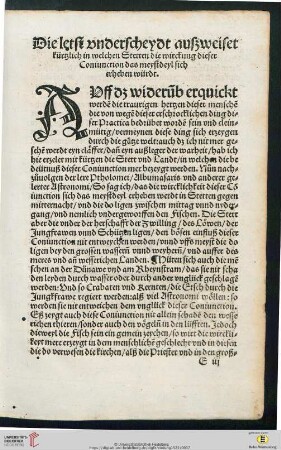 Die letst vnderscheydt außweiset
kürtzlich in welchen Stetten die wirckung dieser
Coniunction das meysttheyl sich
erheben würdt.
AVff dz widerüb erquickt
werdē die traurigen hertzen dieser menschē
die von wegē dieser erschrocklichen ding die
ser Practica bedrübet wordē sein vnd klein=
mütig, vermeynen diese ding sich erzeygen
durch die gütze welt: auch dz ich nit mer ge=
schetzt werde eyn
hie erzeler mit kürtzen die Stett vnd Landt/ in welchen die be
deütnuß dieser Coniunction mer bezeygt werden. Nun nach=
zůuolgen der lere Ptholomei/ Albumasaris vnd anderer ge=
lerter Astronomi/ So sag ich/ das die wircklicheit dieser Cō
iunction sich das meysttheyl erheben werdt in Stetten gegen
mitternacht/ vnd die do ligen zwischen mittag vnnd
gang/ vnd nemlich vndergeworffen den Fischen. Die Stett
aber die vnder der herschafft der Zwilling/ des Löwen/ der
Jungfrawen vnnd Schützen ligen/ den bösen einfluß dieser
Coniunction nit entweychen werden/ vnnd vffs meyst die do
ligen bey den grossen wassern vnnd weyhern/ vnd ausser des
meres vnd an wesserichten Landen. Hüten sich auch die mē
schen an der Dünaw vnd am Rheynstram/ das sie nit scha
den leyden durch wasser oder durch ander vnglück geschlagē
werden: Vnd so Crabaten vnd Kernten/ die Etsch durch die
Jungkfrawe regiert werden/ alß wil Astronomi wöllen: so
werden sie nit entweichen dem vnglück dieser Coniunction.
Es zeygt auch diese Coniunction nit allein schadē den wesse
richen thieren/ sonder auch den vögelñ in den lüfften. Jedoch
dieweyl die Fisch sein ein gemein zeychen/ so wirt die wirckli=
keyt mere erzeygt in dem menschlichē geschlecht vnd in diesen
die do verwesen die kirchen/ alß die Priester vnd in den groß=
E iij